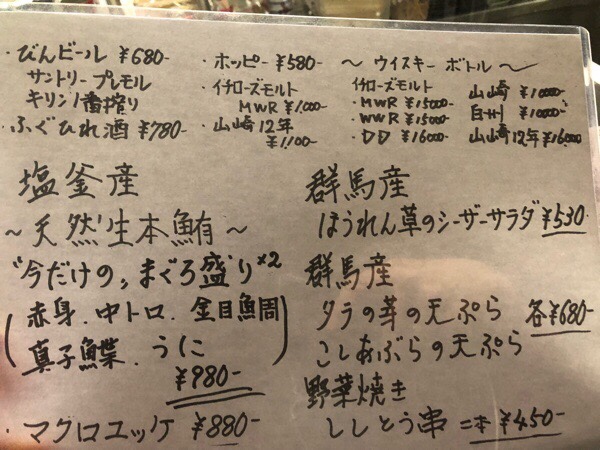 ・びんビール ¥680-
サントリー プレモル
キリン 1番搾り
・ふぐひれ酒 ¥780-
・ホッピー ¥580-
・イチローズモルト
MWR ¥1,000-
・山崎12年
¥1,100-
〜ウイスキー ボトル〜
イチローズモルト
・MWR ¥15000-
・WWR ¥15000-
・DD ¥16000-
山崎 ¥10000-
白州 ¥10000-
山崎12年 ¥16000-
塩釜産
〜天然生本鮪〜
"今だけの〟まぐろ盛り×2
(赤身.中トロ.金目鯛
真子鰈.うに)
¥980-
・マグロユッケ ¥880-
群馬産
ほうれん草のシーザーサラダ ¥530-
群馬産
タラの芽の天ぷら 各¥680-
こしあぶらの天ぷら
野菜焼き
ししとう串 二本 ¥450-